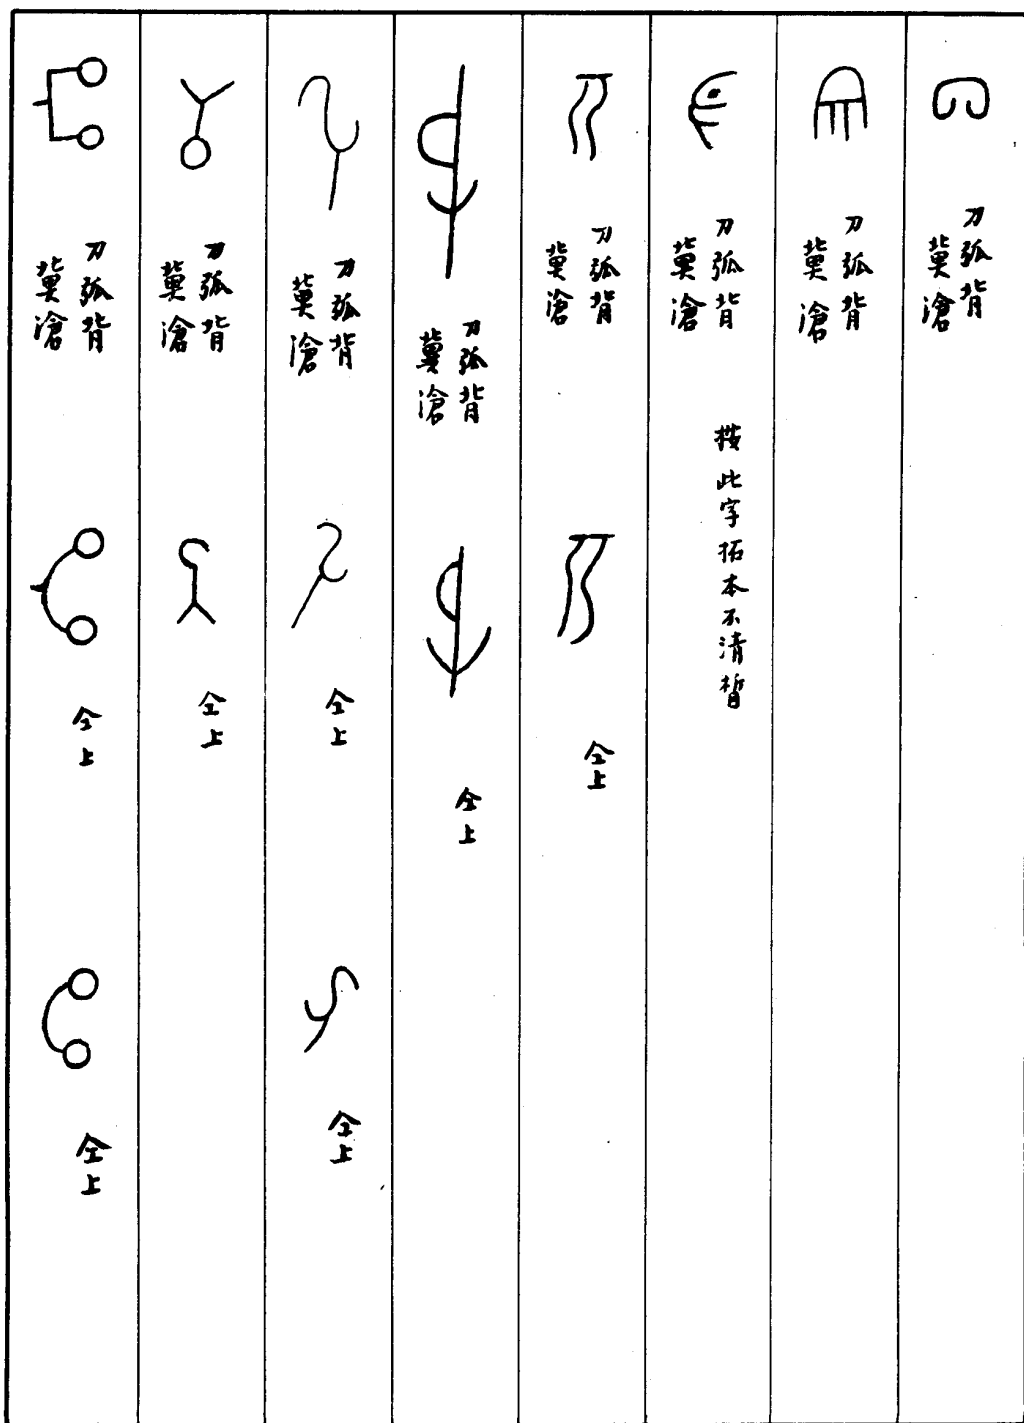 刀弧背
冀滄
刀弧背
冀滄
刀弧背
冀滄
按此字拓本不清晳
刀弧背
冀滄
仝上
刀弧背
冀滄
仝上
刀弧背
冀滄
仝上
仝上
刀弧背
冀滄
仝上
刀弧背
冀滄
仝上
仝上